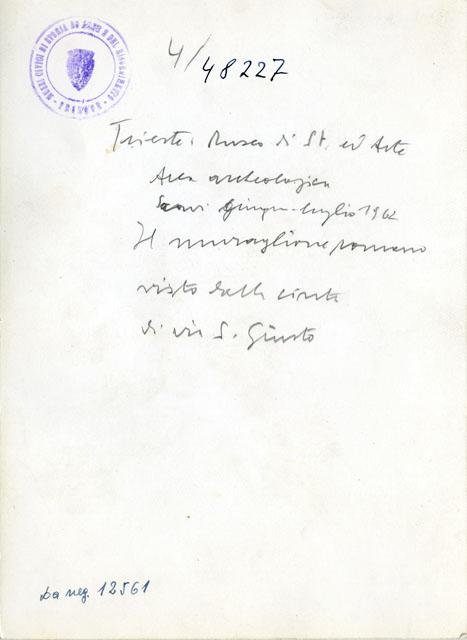 MUSEI CIVICI DI STORIA ED ARTE E DEL RISORGIMENTO - TRIESTE -
4/48227
Trieste: Museo di St. ed Arte
Area archeologica
Scavi giugno-luglio 1962
Il muraglione romano
visto dalla cinta
di via S. Giusto
Da neg. 12561